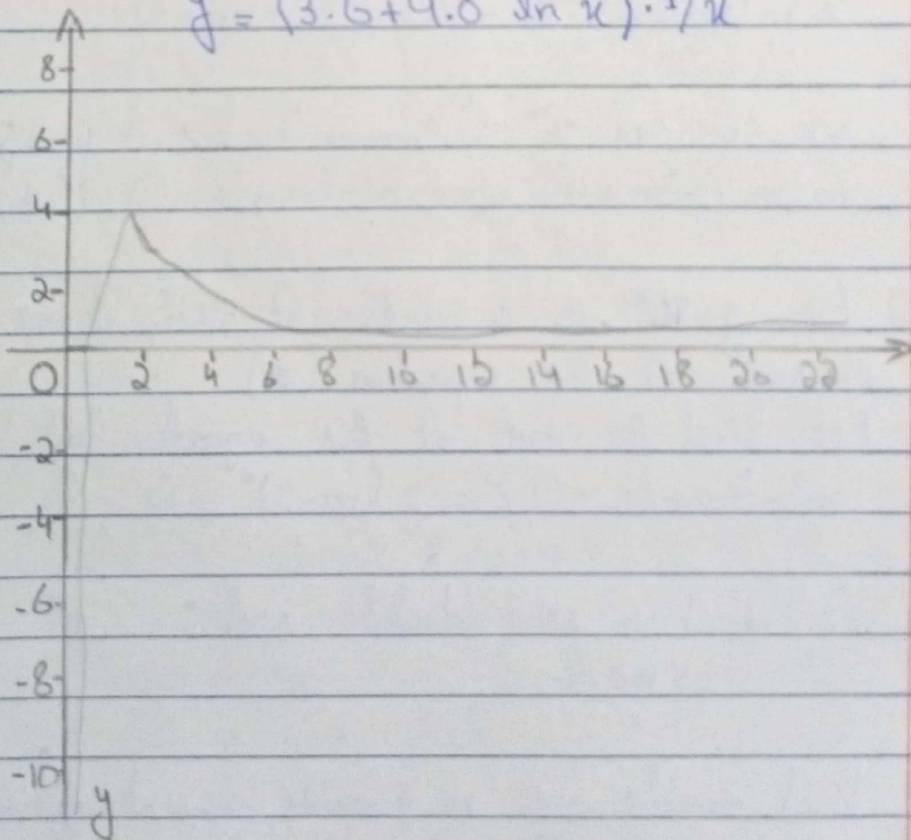 y = (3.6+4.0 ln x) · 1/x
8
6
4
2
0 2 4 6 8 10 12 14 16 18 20 22
-2
-4
-6
-8
-10
y